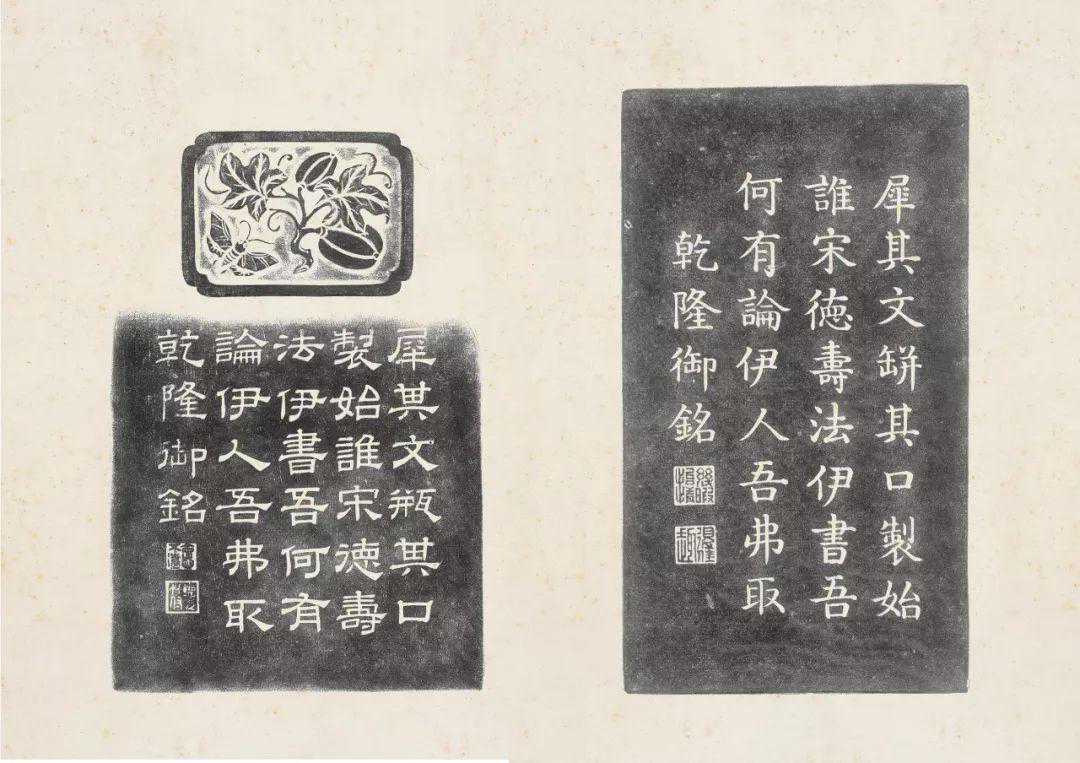 犀其文缾其口製始
誰宋徳壽法伊書吾
何有論伊人吾弗取
乾隆御銘
幾暇怡情
得佳趣
犀其文瓶其口
製始誰宋徳壽
法伊書吾何有
論伊人吾弗取
乾隆御銘